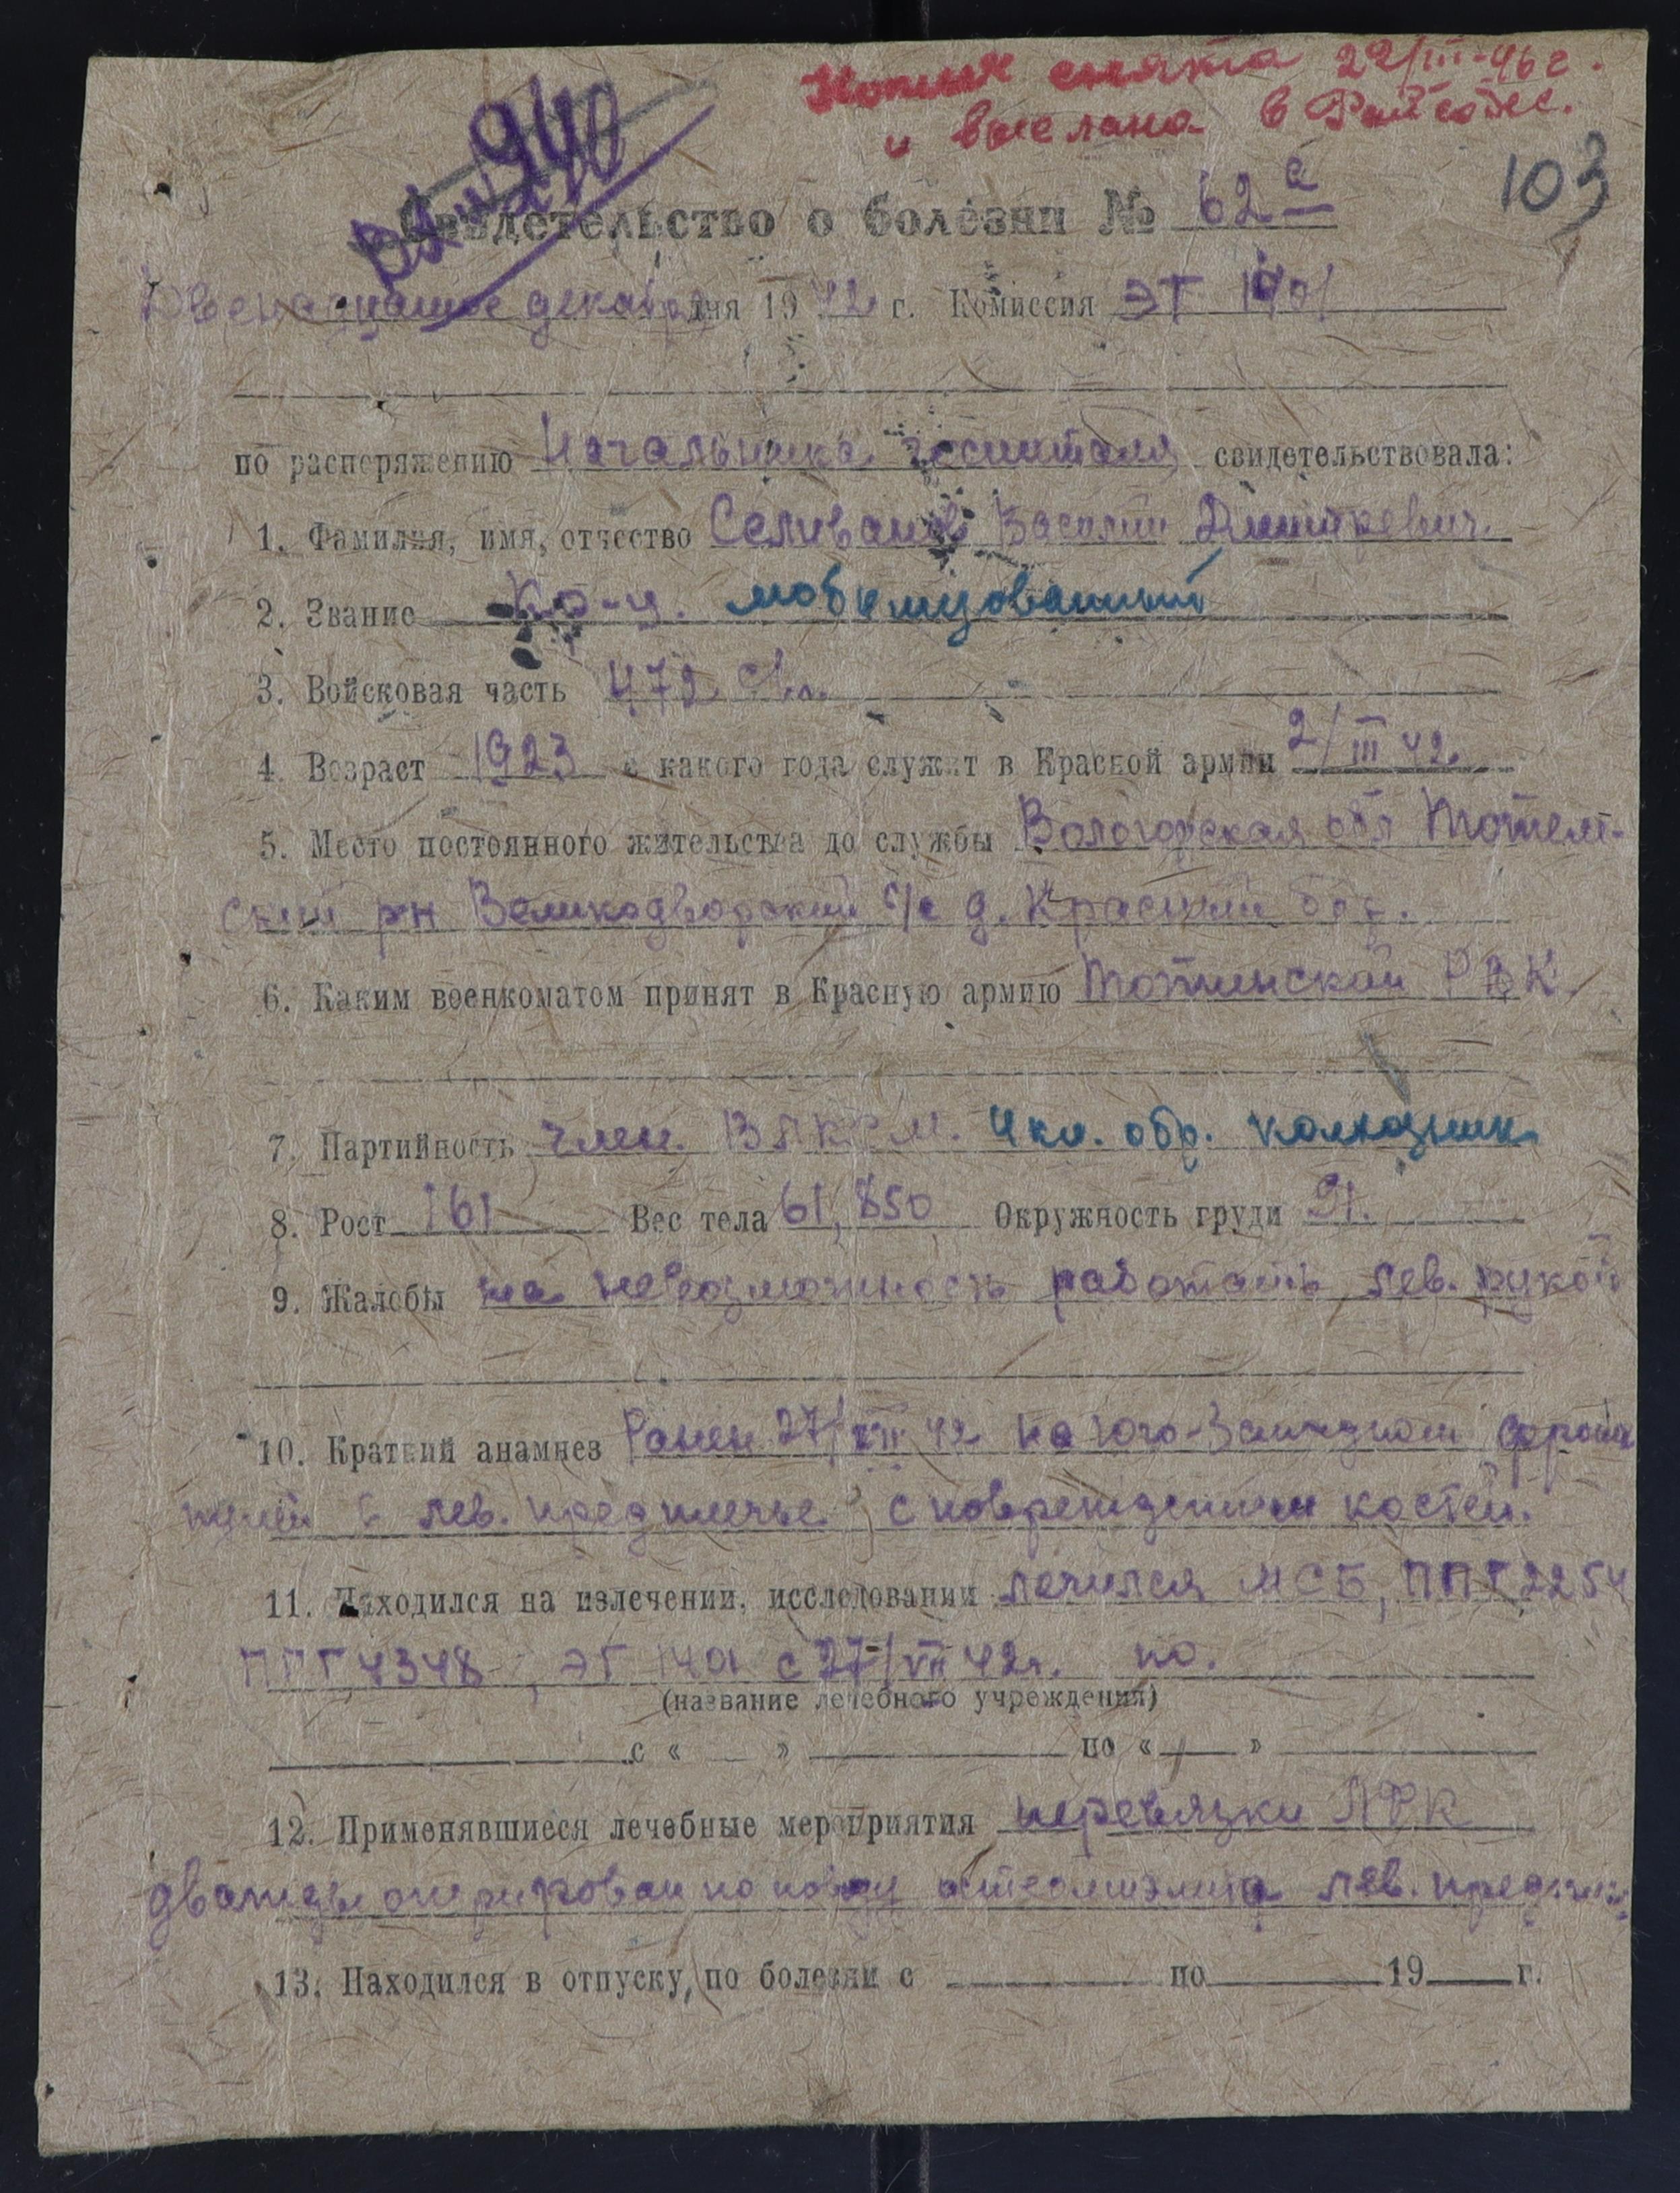 Копия снята 22/III-46 г.
и выслана в Райсобес.
103
940
Свидетельство о болезни № 62 а
Двенадцатое декабря дня 1942 г. Комиссия ЭГ 1401
по распоряжению Начальника госпиталя свидетельствовала:
1. Фамилия, имя, отчество Селиванов Василий Димитревич.
2. Звание кр-ц. мобилизованный
3. Войсковая часть 472 с.п.
4. Возраст 1923 с какого года служит в Красной армии 2/III 42.
5. Место постоянного жительства до службы Вологодская обл Тотем-
ский р-н Великодворский с/с д. Красный бор.
6. Каким военкоматом принят в Красную армию Тотминский РВК
7. Партийность член. ВЛКСМ. 4 кл. обр. колхозник
8. Рост 161 Вес тела 61,850 Окружность груди 91.
9. Жалобы на невозможность работать лев. рукой
10. Краткий анамнез Ранен 27/VII 42 на Юго-Западном фронте
пулей в лев. предплечье с повреждением костей.
11. Находился на излечении, исследовании лечился МСБ, ППГ 2254
ППГ 4348, ЭГ 1401 с 27/VII 42 г. по.
(название лечебного учреждения)
с « » по « »
12. Применявшиеся лечебные мероприятия перевязки ЛФК
дважды оперирован по поводу остеомиэлита лев. предплеч.
13. Находился в отпуску, по болезни с по 19 г.